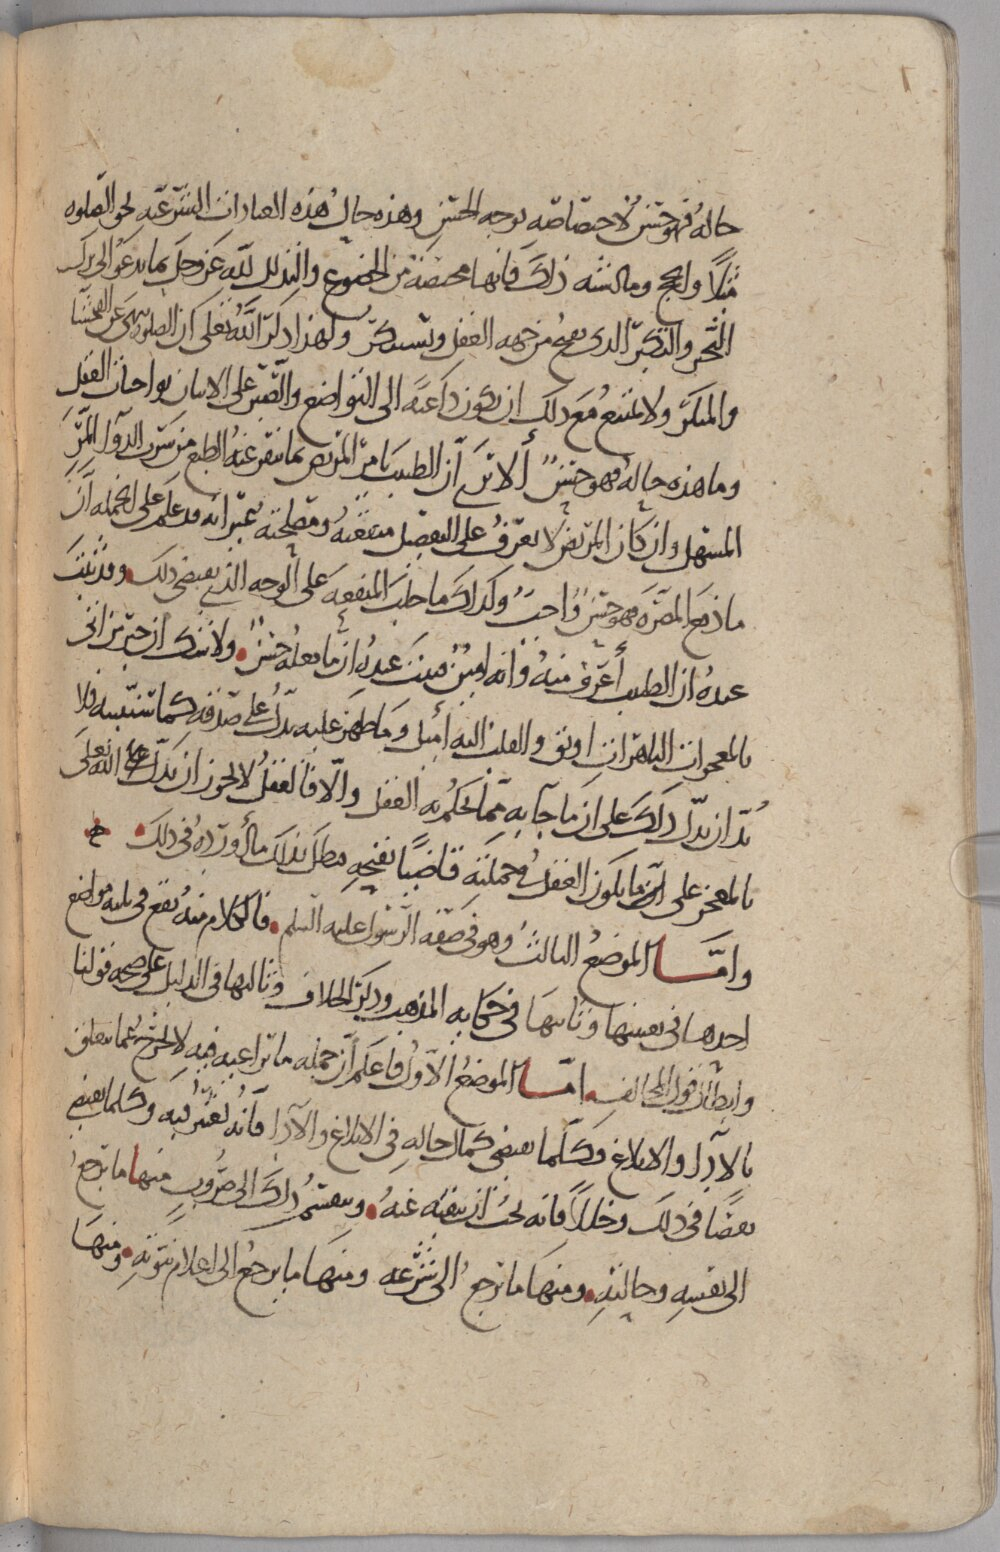 حاله فهو حسن لاختصاصه بوجه الحسن وهذه حال هذه العبادات الشرعيه نحو الصلوه
مثلا والحج وما اشبه ذلك فانها محصنة من الخضوع والتذلل لله عز وجل بما يدعو الى ترك
التجبر والتكبر الذى يقبح من جهه العقل ويستنكر ولهذا ذكر الله تعلى ان الصلوه تنهى عن الفحشا
والمنكر ولا يمتنع مع ذلك ان يكون داعية الى التواضع والتقبل على الاتيان بواجبات العقل
وما هذه حاله فهو حسن ألا ترى أن الطبيب يامر المريض بما ينفر عنه الطبع من شرب الدوا المر
المسهل وان كان المريض لا يعرف على التفصيل منفعته ومصلحته غير انه قد علم على الجمله أن
ما دفع المضره فهو حسن واجب وكذلك ما جلب المنفعه على الوجه الذي يقتضى ذلك وقد ثبت
عنده ان الطبيب أعرف منه وانه امين فيثبت عنده ان ما يفعله حسن ولا شك ان خبر من اتى
بالمعجزات الباهرات اوثق والقلب اليه أميل وما ظهر عليه يدل على صدقه كما سنبينه فلا
بد ان يدل ذلك على ان ما جآ به مما يحكم به العقل والا فالعقل لا يجوز ان يدل الله تعلى
بالمعجز على ان ما يكون العقل بجملته قاضيا بقبحه فبطل بذلك ما أورده فى ذلك
وامــا الموضع الثالث وهو فى صفه الرسول عليه السلم فالكلام منه يقع فى ثلثه مواضع
احدها فى تعيينها وثانيها فى حكايه المذهب وذكر الخلاف وثالثها فى الدليل على صحه قولنا
وابطال قول المخالف امــا الموضع الأول فاعلم أن جمله ما نراعيه فيه لا يخرج عما يتعلق
بالادآ والابلاغ فكلما يقتضى كمال حاله فى الابلاغ والادآ فانه يعتبر فيه وكلما يقتضى
نقصا فى ذلك وخللا فانه يجب ان ينفيه عنه وينقسم ذلك الى ضروب منها ما يرجع
الى نفسه وحالته ومنها ما يرجع الى شرعه ومنها ما يرجع الى اعلام نبوته ومنها